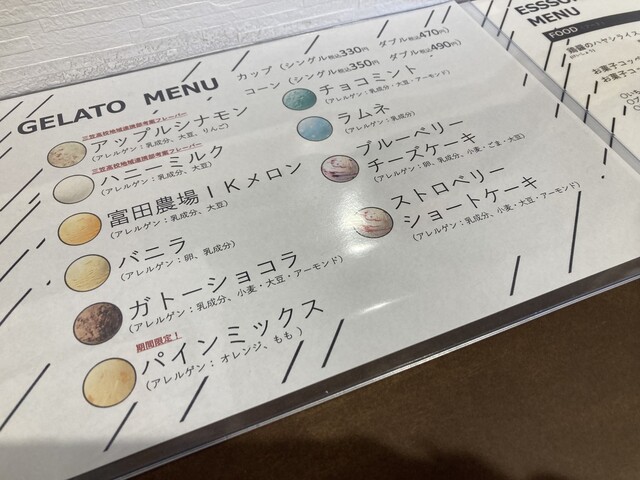 GELATO MENU
カップ（シングル税込330円　ダブル税込470円）
コーン（シングル税込350円　ダブル税込490円）
三笠高校地域連携部考案フレーバー
アップルシナモン
（アレルゲン：乳成分、大豆、りんご）
三笠高校地域連携部考案フレーバー
ハニーミルク
（アレルゲン：乳成分、大豆）
富田農場IKメロン
（アレルゲン：乳成分、大豆）
バニラ
（アレルゲン：卵、乳成分）
ガトーショコラ
（アレルゲン：乳成分、小麦・大豆・アーモンド）
期間限定！
パインミックス
（アレルゲン：オレンジ、もも）
チョコミント
（アレルゲン：乳成分・大豆・アーモンド）
ラムネ
（アレルゲン：乳成分）
ブルーベリー
チーズケーキ
（アレルゲン：卵、乳成分、小麦・ごま・大豆）
ストロベリー
ショートケーキ
（アレルゲン：乳成分、小麦・大豆・アーモンド）
MENU
FOOD
のハヤシライス
お菓子コッペ
お菓子コ